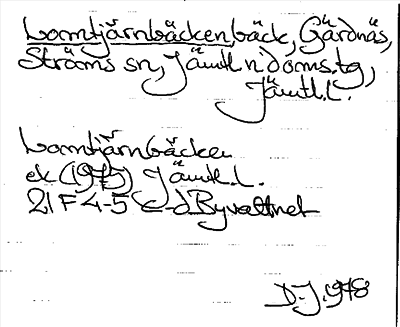 Lomtjärnbäcken, bäck, Gärdnäs,
Ströms sn, Jämtl. n. doms. tg,
Jämtl. l.
Lomtjärnbäcken
ek (1975) Jämtl. l.
21 F 4-5 c-d Byvattnet
D-J. 1978